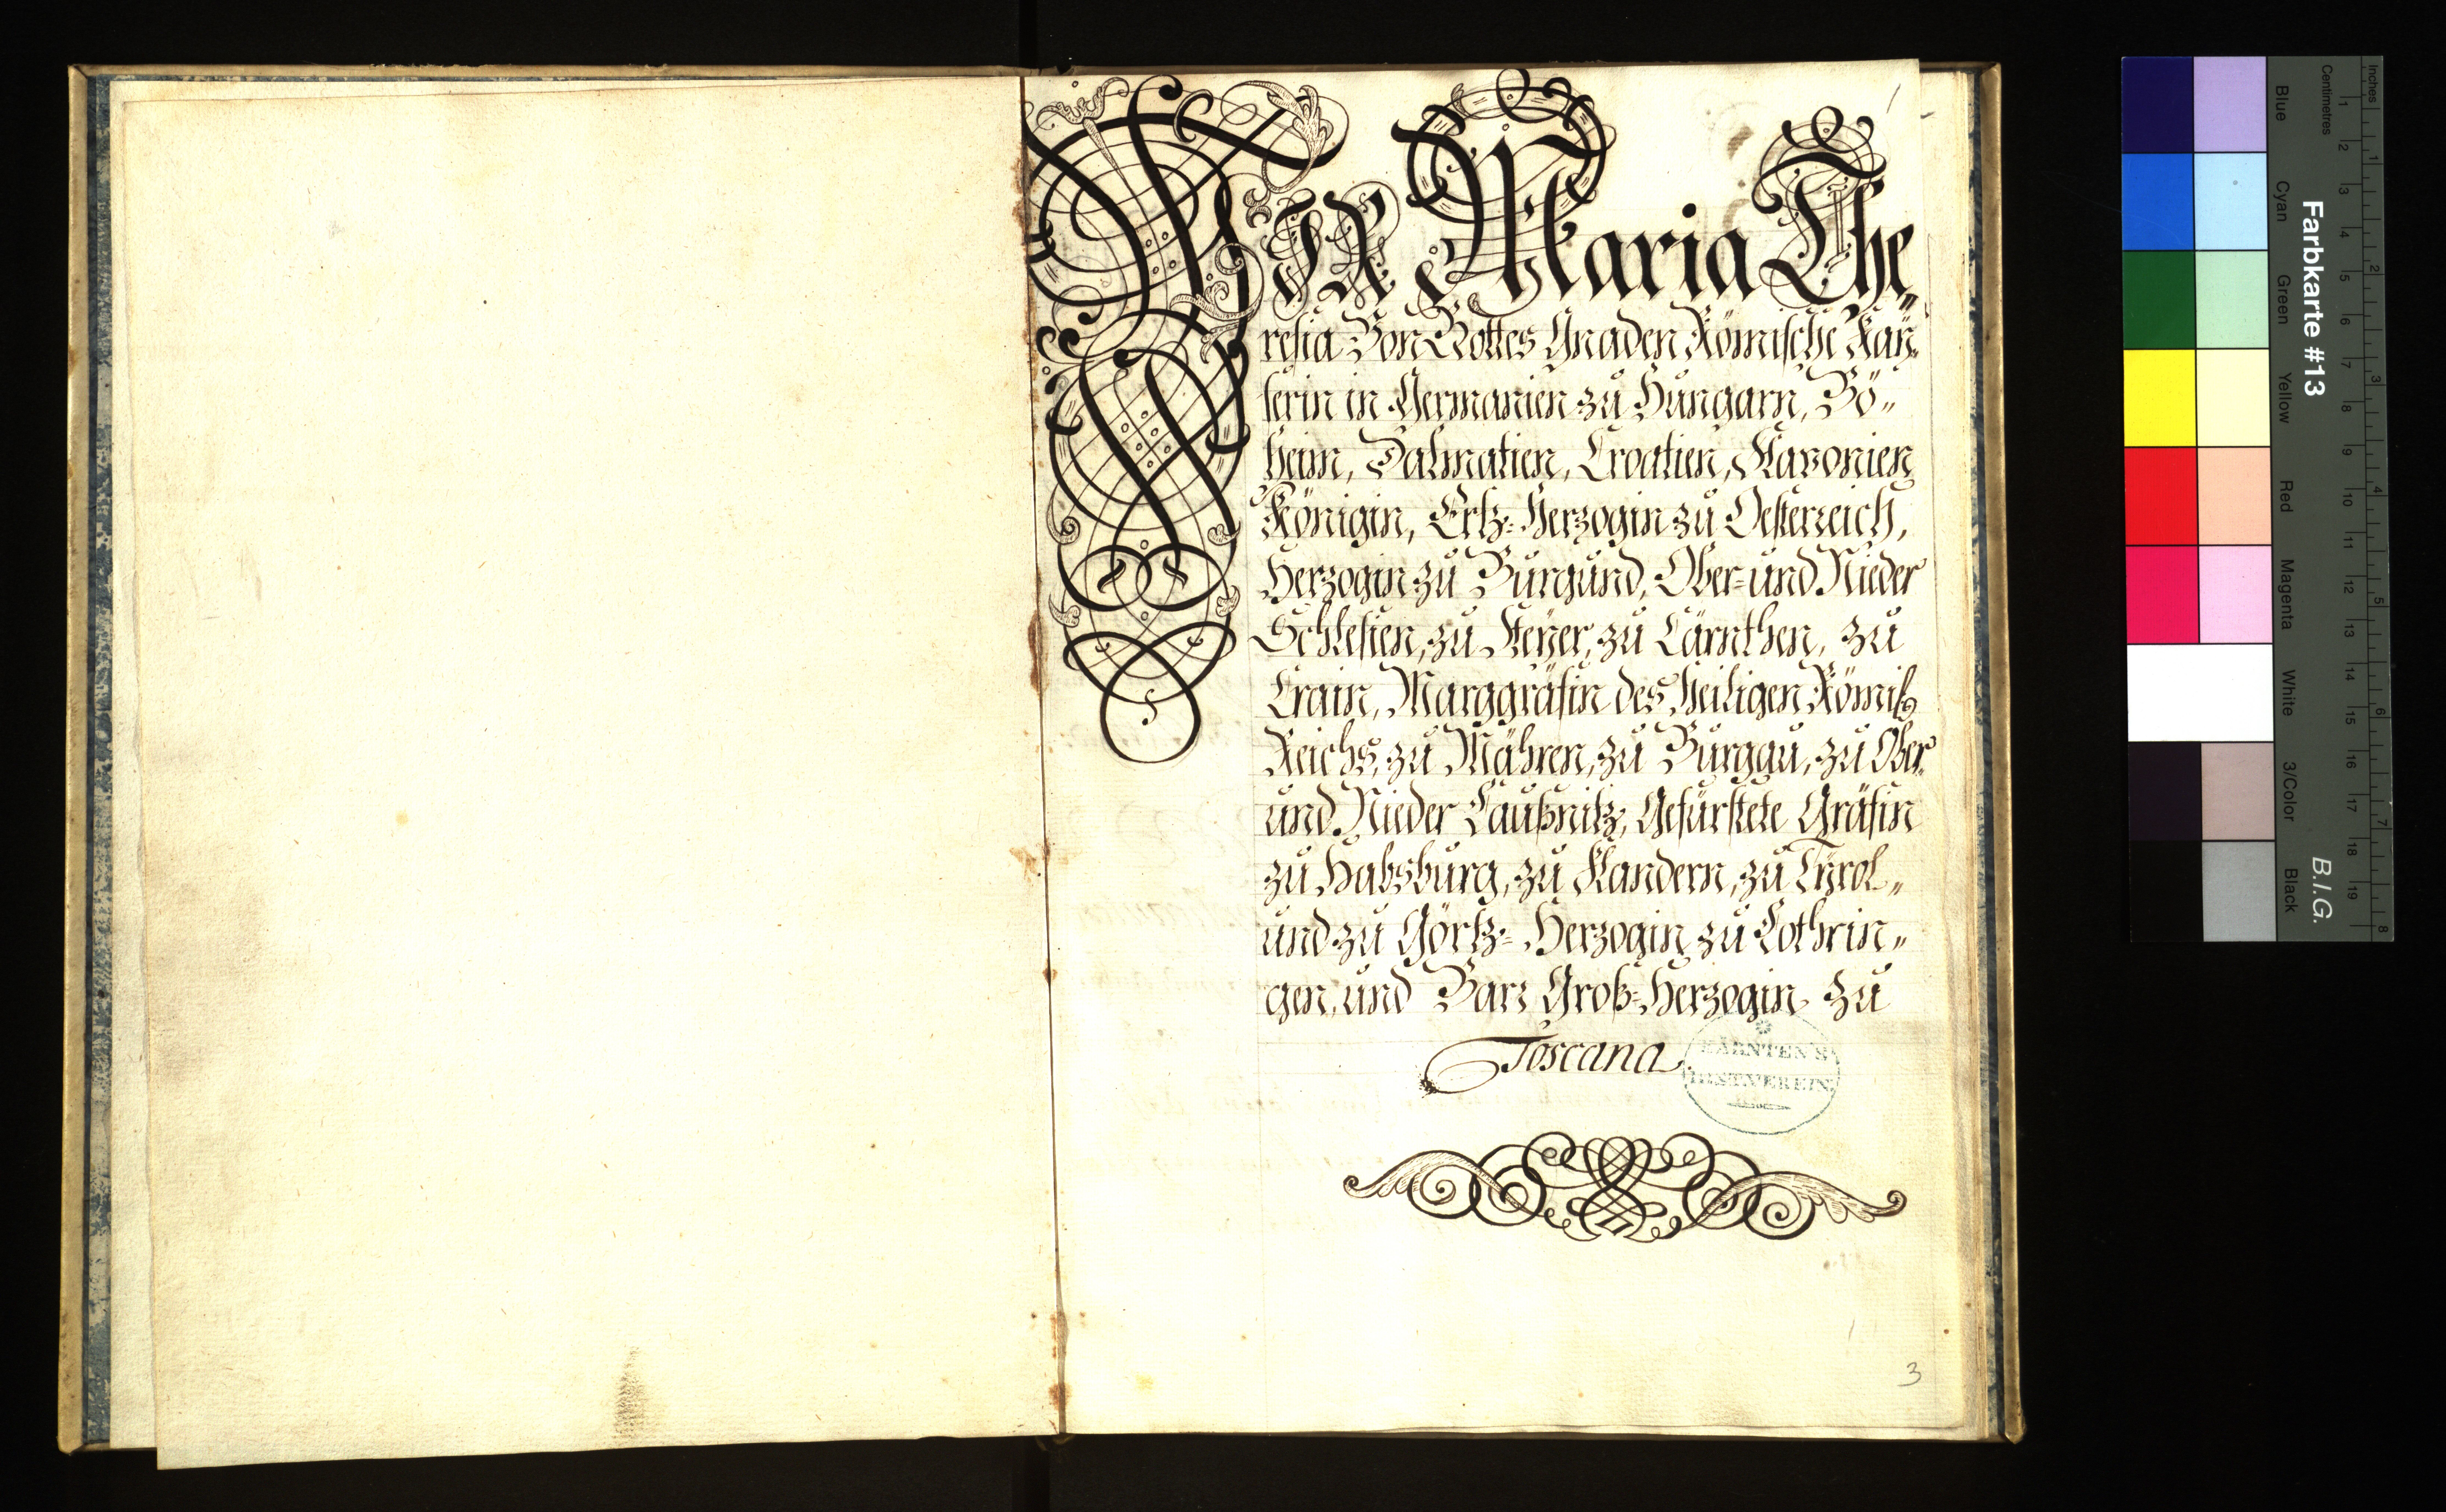 1
WIR Maria The„
resia Von Gottes Gnaden Römische Kaÿ„
serin in Germanien zu Hungarn, Bö„
heim, Dalmatien, Croatien, Slavonien
Königin, Ertz-Herzogin zu Oesterreich,
Herzogin zu Burgund, Ober- und Nieder
Schlesien, zu Steÿer, zu Cärnthen, zu
Crain, Marggräfin des Heiligen Römisch
Reichs, zu Mähren, zu Burgau, zu Ober-
und Nieder Laußnitz, Gefürstete Gräfin
zu Habsburg, zu Flandern, zu Tÿrol„
und zu Görtz- Herzogin zu Lothrin„
gen, und Barr Groß-Herzogin zu
Toscana
KÄRNTEN'S
HIST.VEREIN
3
Farbkarte #13
B.I.G.
Inches
Centimetres
1 2 3 4 5 6 7 8
1 2 3 4 5 6 7 8 9 10 11 12 13 14 15 16 17 18 19
Blue
Cyan
Green
Yellow
Red
Magenta
White
3/Color
Black